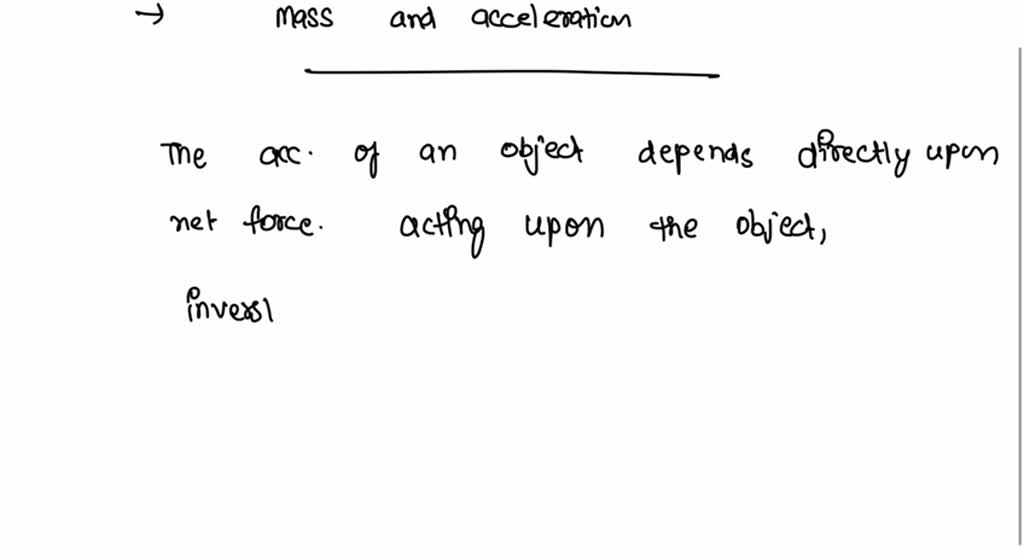 → mass and acceleration
The acc. of an object depends directly upon
net force. acting upon the object,
inversl